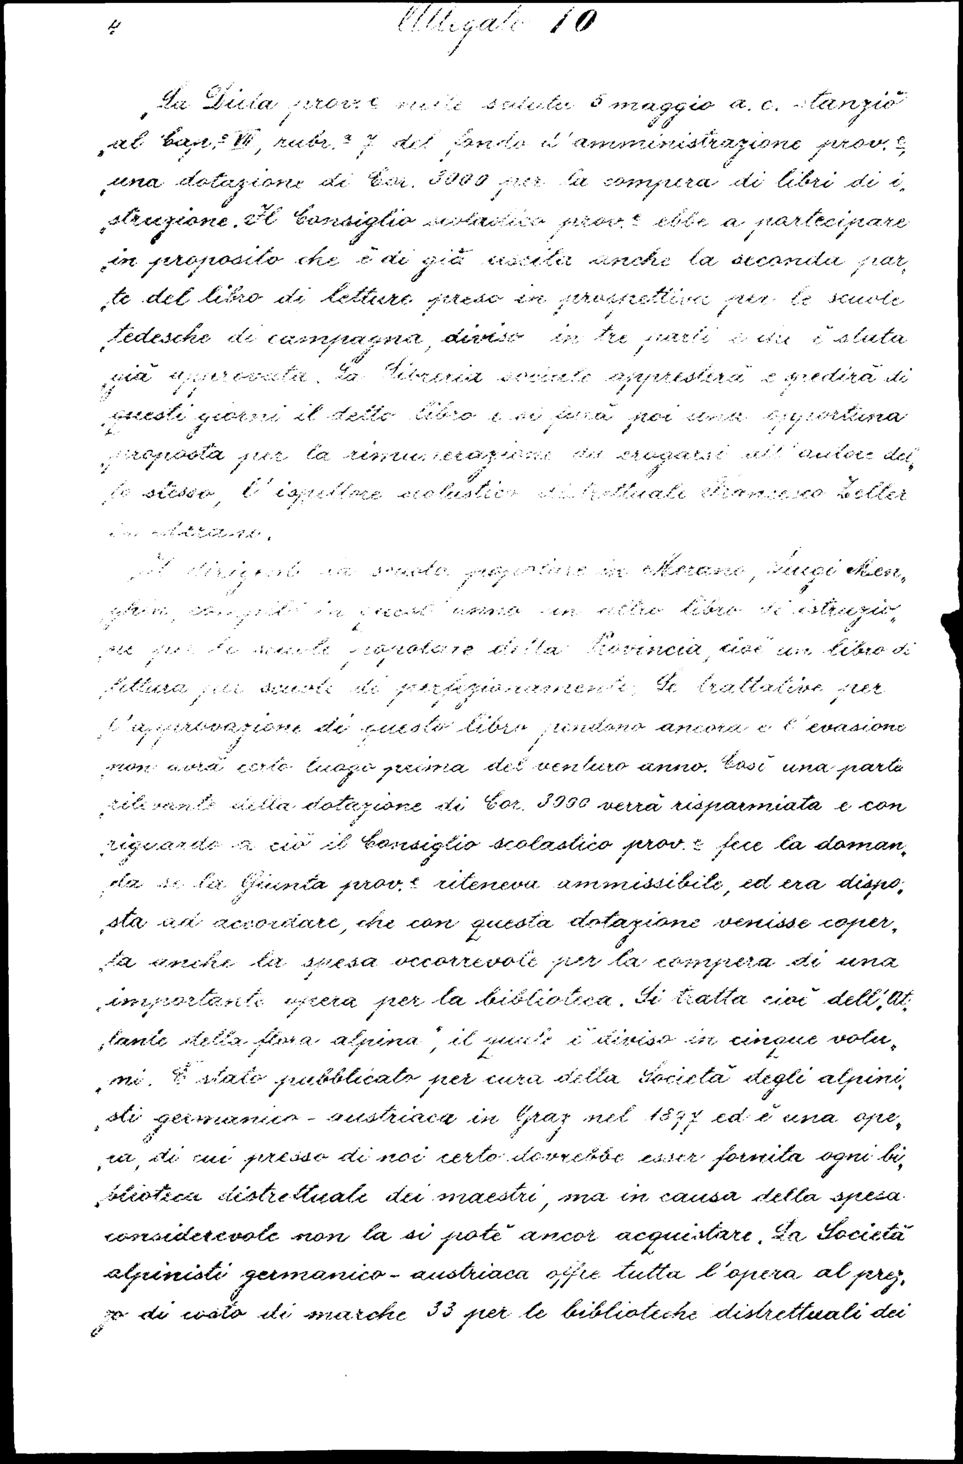 4 Allegato 10
„La Dieta prov.e nella seduta 5 maggio a. c. stanziò
„al Cap.o VII, rubr.a 7 del fondo d'amministrazione prov.e,
„una dotazione di Cor. 3000 per la compera di libri di i„
„struzione. Il Consiglio scolastico prov.e ebbe a partecipare
„in proposito che è di già uscita anche la seconda par„
„te del libro di letture preso in prospettiva per le scuole
„tedesche di campagna, diviso in tre parti e che è stata
„già approvata. La Libreria sociale appresterà e spedirà di
„questi giorni il detto libro e si farà poi una opportuna
„proposta per la rimunerazione da erogarsi all'autore del„
„lo stesso, l'ispettore scolastico distrettuale Francesco Zelter
in Merano.
„Il dirigente la scuola popolare in Merano, Luigi Men„
„ghin, compilò in quest'anno un altro libro di istruzio„
„ne per le scuole popolari della Provincia, cioè un libro di
„lettura per scuole di perfezionamento. Le trattative per
„l'approvazione di questo libro pendono ancora e l'evasione
„non avrà certo luogo prima del venturo anno. Così una parte
„rilevante della dotazione di Cor. 3000 verrà risparmiata e con
„riguardo a ciò il Consiglio scolastico prov.e fece la doman„
„da se la Giunta prov.e riteneva ammissibile, ed era dispo„
„sta ad accordare, che con questa dotazione venisse coper„
„ta anche la spesa occorrevole per la compera di una
„importante opera per la biblioteca. Si tratta cioè dell'„At„
„lante della flora alpina", il quale è diviso in cinque volu„
„mi. È stato pubblicato per cura della Società degli alpini„
„sti germanico-austriaca in Graz nel 1897 ed è una ope„
„ra, di cui presso di noi certo dovrebbe esser fornita ogni bi„
„blioteca distrettuale dei maestri, ma in causa della spesa
considerevole non la si potè ancor acquistare. La Società
alpinisti germanico-austriaca offre tutta l'opera al prez„
zo di costo di marche 33 per le biblioteche distrettuali dei